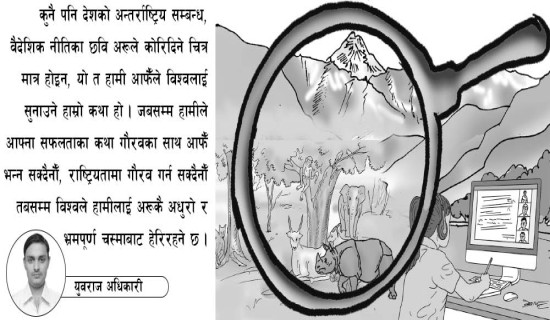 कुनै पनि देशको अन्तर्राष्ट्रिय सम्बन्ध,
वैदेशिक नीतिका छवि अरूले कोरिदिने चित्र
मात्र होइन, यो त हामी आफैँले विश्वलाई
सुनाउने हाम्रो कथा हो । जबसम्म हामीले
आफ्ना सफलताका कथा गौरवका साथ आफैँ
भन्न सक्दैनौँ, राष्ट्रियतामा गौरव गर्न सक्दैनौँ
तबसम्म विश्वले हामीलाई अरूकै अधुरो र
भ्रमपूर्ण चस्माबाट हेरिरहने छ ।
युवराज अधिकारी